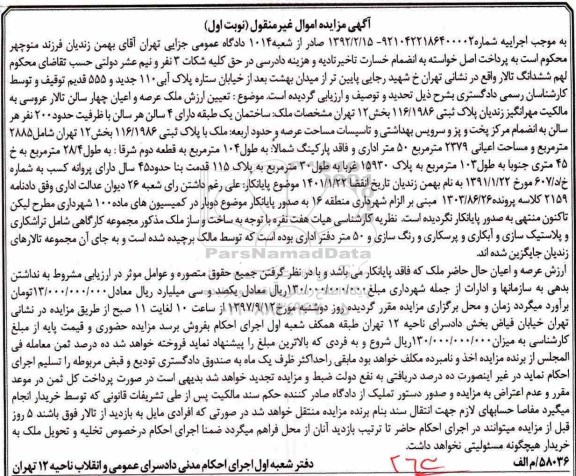 آگهی مزایده اموال غیر منقول (نوبت اول)
به موجب اجراییه شماره ۹۲۱۰۴۲۲۱۸۶۴۰۰۰۰۲-۱۳۹۲/۲/۱۵ صادر از شعبه ۱۰۱۴ دادگاه عمومی جزایی تهران آقای بهمن زندیان فرزند منوچهر
محکوم است به پرداخت اصل خواسته به انضمام خسارت تاخیر تادیه و هزینه دادرسی در حق کلیه شکات ۳ نفر و نیم عشر دولتی حسب تقاضای محکوم
لهم ششدانگ تالار واقع در نشانی تهران خ شهید رجایی پایین تر از میدان بهشت بعد از خیابان ستاره پلاک آبی ۱۱۰ جدید و ۵۵۵ قدیم توقیف و توسط
کارشناسان رسمی دادگستری بشرح ذیل تحدید و توصیف و ارزیابی گردیده است. موضوع : تعیین ارزش ملک عرصه و اعیان چهار سالن تالار عروسی به
مالکیت مهرانگیز زندیان پلاک ثبتی ۱۱۶/۱۹۸۶ بخش ۱۲ تهران مشخصات ملک: ساختمان یک طبقه دارای ۴ سالن هر سالن با ظرفیت حدود ۲۰۰ نفر هر
سالن به انضمام مرکز پخت و پز و سرویس بهداشتی و تاسیسات مساحت عرصه و حدود اربعه: ملک با پلاک ثبتی ۱۱۶/۱۹۸۶ بخش ۱۲ تهران شامل ۲۸۸۵
مترمربع و مساحت اعیانی ۲۳۷۹ مترمربع ۵۰ متر اداری و فاقد پارکینگ شمالاً: به طول ۱۰۴ مترمربع به قطعه دوم شرقا : به طول ۲۸/۴ مترمربع به خ
۴۵ متری جنوبا به طول ۱۰۳ مترمربع به پلاک ۱۵۹۳۰ غربا به طول ۳۰ مترمربع به پلاک ۱۱۵ قدمت بنا حدود ۴۵ سال دارای پروانه کسب به شماره
خ/د/۶۰۷ مورخ ۱۳۹۱/۱/۲۲ به نام بهمن زندیان تاریخ انقضا ۱۴۰۱/۱/۲۲ موضوع پایانکار: علی رغم پاشتن رای شعبه ۲۶ دیوان عدالت اداری وفق دادنامه
۲۱۵۹ کلاسه پرونده ۱۳۰۳/۸۶/۲۶ مبنی بر الزام شهرداری منطقه ۱۶ به صدور پایانکار موضوع دوبار در کمیسیون های ماده ۱۰۰ شهرداری مطرح لیکن
تاکنون منتهی به صدور پایانکار نگردیده است. نظریه کارشناسی هیات هفت نفره با توجه به ساخت و ساز ملک مذکور مجموعه کارگاهی شامل تراشکاری
و پلاستیک سازی و آبکاری و پرسکاری و رنگ سازی و ۵۰ متر دفتر اداری بوده است که توسط مالک برچیده شده است و به جای آن مجموعه تالارهای
زندیان جایگزین شده اند.
ارزش عرصه و اعیان حال حاضر ملک که فاقد پایانکار می باشد و با در نظر گرفتن جمیع حقوق متصوره و عوامل موثر در ارزیابی مشروط به نداشتن
بدهی به سازمانها و ادارات از جمله شهرداری مبلغ ۱۳۰/۰۰۰/۰۰۰/۰۰۰ ریال معادل یکصد و سی میلیارد ریال معادل ۱۳/۰۰۰/۰۰۰/۰۰۰ تومان
برآورد میگردد زمان و محل برگزاری مزایده مقرر گردیده روز دوشنبه مورخ ۱۳۹۷/۹/۱۲ از ساعت ۱۰ لغایت ۱۱ صبح از طریق مزایده در نشانی
تهران خیابان فیاض بخش دادسرای ناحیه ۱۲ تهران طبقه همکف شعبه اول اجرای احکام بفروش برسد مزایده حضوری و قیمت پایه از مبلغ
کارشناسی به میزان ۱۳۰/۰۰۰/۰۰۰/۰۰۰ ریال شروع و به فردی که بالاترین مبلغ را پیشنهاد نماید فروخته خواهد شد ده درصد ثمن معامله فی
المجلس از برنده مزایده اخذ و نامبرده مکلف خواهد بود مابقی را حداکثر ظرف یک ماه به صندوق دادگستری تودیع و قبض مربوطه را تسلیم اجرای
احکام نماید در غیر اینصورت ده درصد دریافتی به نفع دولت ضبط و مزایده تجدید خواهد شد بدیهی است در صورت پرداخت کل ثمن در موعد
مقرر و عدم اعتراض به مزایده و صدور دستور تملیک از دادگاه صادر کننده حکم سند مالکیت پس از طی تشریفات قانونی که توسط خریدار انجام
میگیرد مفاصا حسابهای لازم جهت انتقال سند بنام برنده مزایده منتقل خواهد شد در صورتی که افرادی مایل به بازدید از تالار فوق باشند ۵ روز
قبل از مزایده میتوانند در اجرای احکام حاضر تا ترتیب بازدید آنان از محل فراهم میگردد ضمنا اجرای احکام درخصوص تخلیه و تحویل ملک به
خریدار هیچگونه مسئولیتی نخواهد داشت.
دفتر شعبه اول اجرای احکام مدنی دادسرای عمومی و انقلاب ناحیه ۱۲ تهران
۵۸۰۳۶/م الف
ParsNamadData